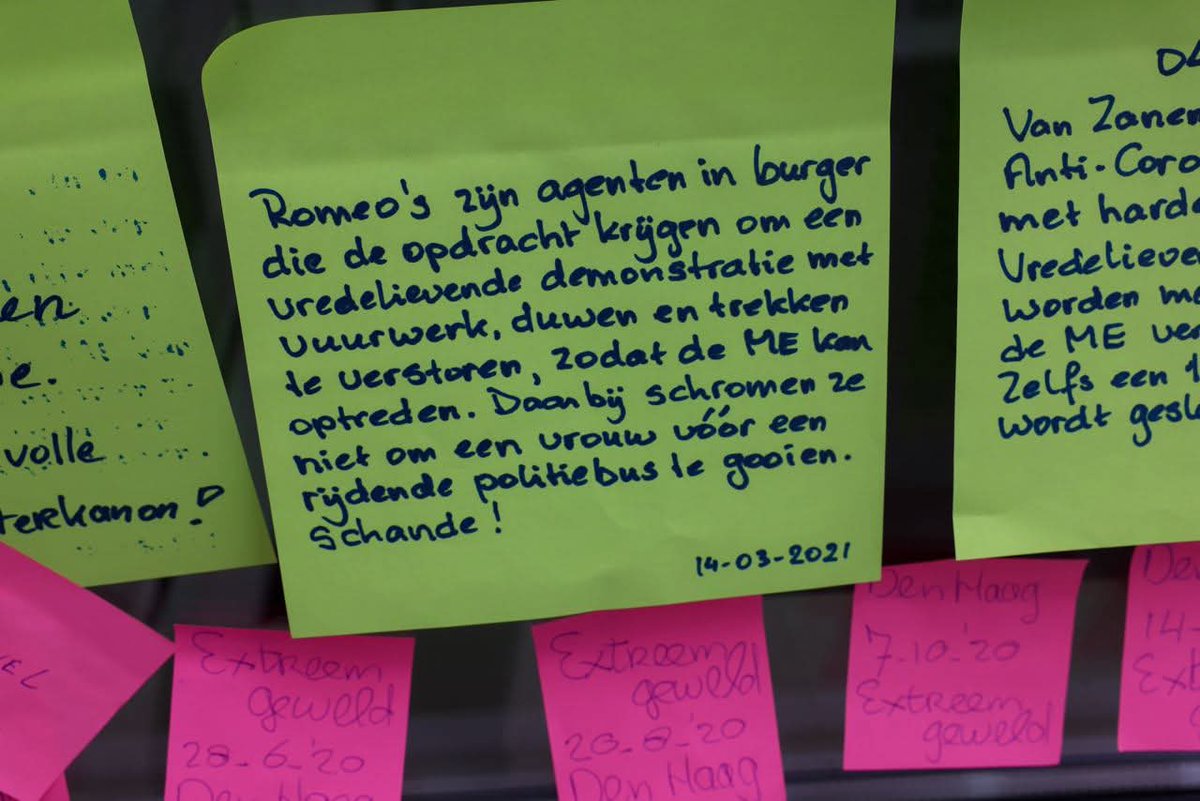 en
e.
volle
terkanon!
Romeo's zijn agenten in burger
die de opdracht krijgen om een
vredelievende demonstratie met
vuurwerk, duwen en trekken
te verstoren, zodat de ME kan
optreden. Daarbij schromen ze
niet om een vrouw vóór een
rijdende politiebus te gooien.
Schande!
14-03-2021
Van Zanen
Anti-Coro
met harde
Vredelieve
worden m
de ME ve
Zelfs een 1
wordt gesl
EL
Extreem
geweld
28-6-'20
Den Haag
Extreem
geweld
20-8-'20
Den Haag
Den Haag
7-10-'20
Extreem
geweld
De
14-
Ext